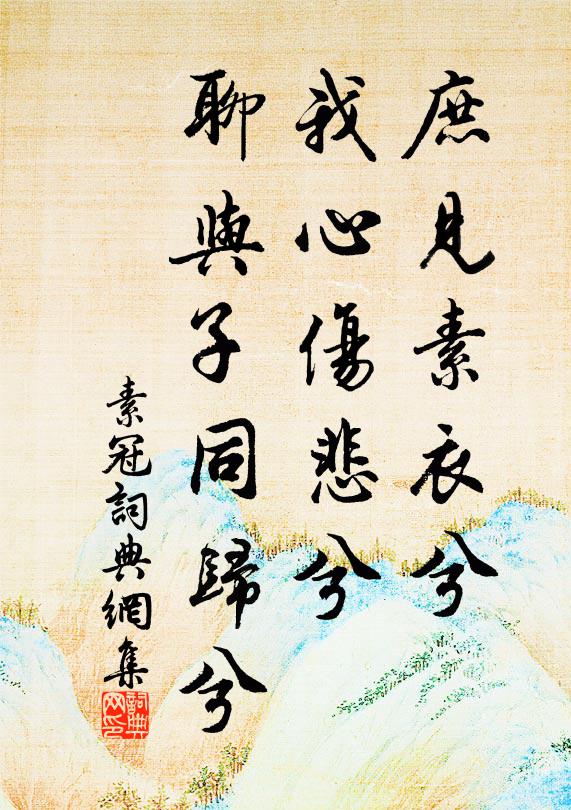 庶見素衣兮
我心傷悲兮
聊與子同歸兮
素冠詞典網集
詞典网印